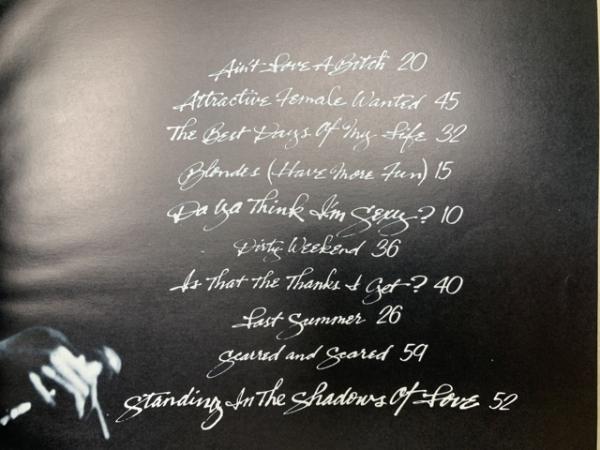 Ain't Love A Bitch 20
Attractive Female Wanted 45
The Best Days Of My Life 32
Blondes (Have More Fun) 15
Da Ya Think I'm Sexy? 10
Dirty Weekend 36
Is That The Thanks I Get? 40
Last Summer 26
Scarred and Scared 59
Standing In The Shadows Of Love 52